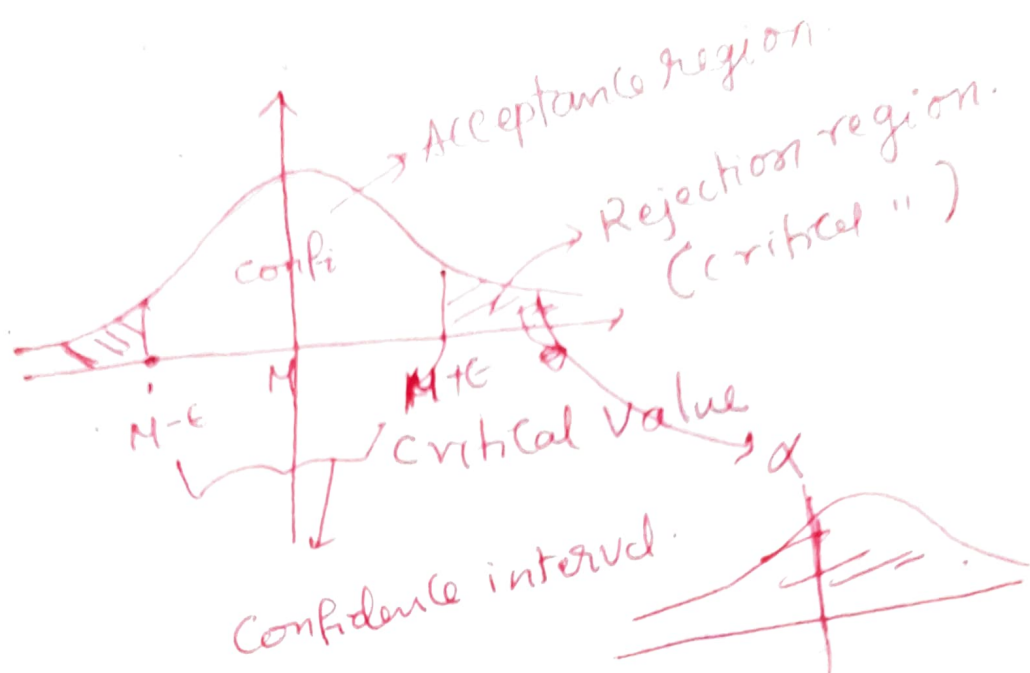 Acceptance region.
Rejection region.
(critical ")
Confi
M
M-ε
M+ε
Critical Value
α
Confidence interval.